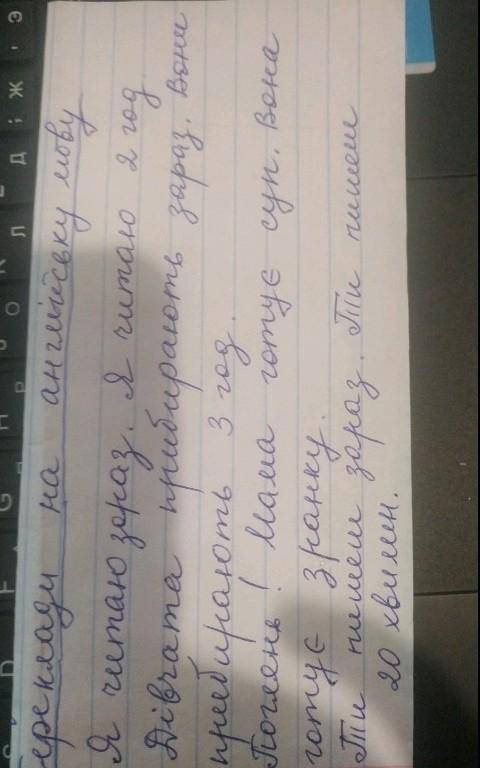 Переклади на англійську мову
Я читаю зараз. Я читаю 2 год.
Дівчата прибирають зараз. Вони
прибирають 3 год.
Поглянь! Мама готує суп. Вона
готує зранку.
Ти пишеш зараз. Ти пишеш
20 хвилин.